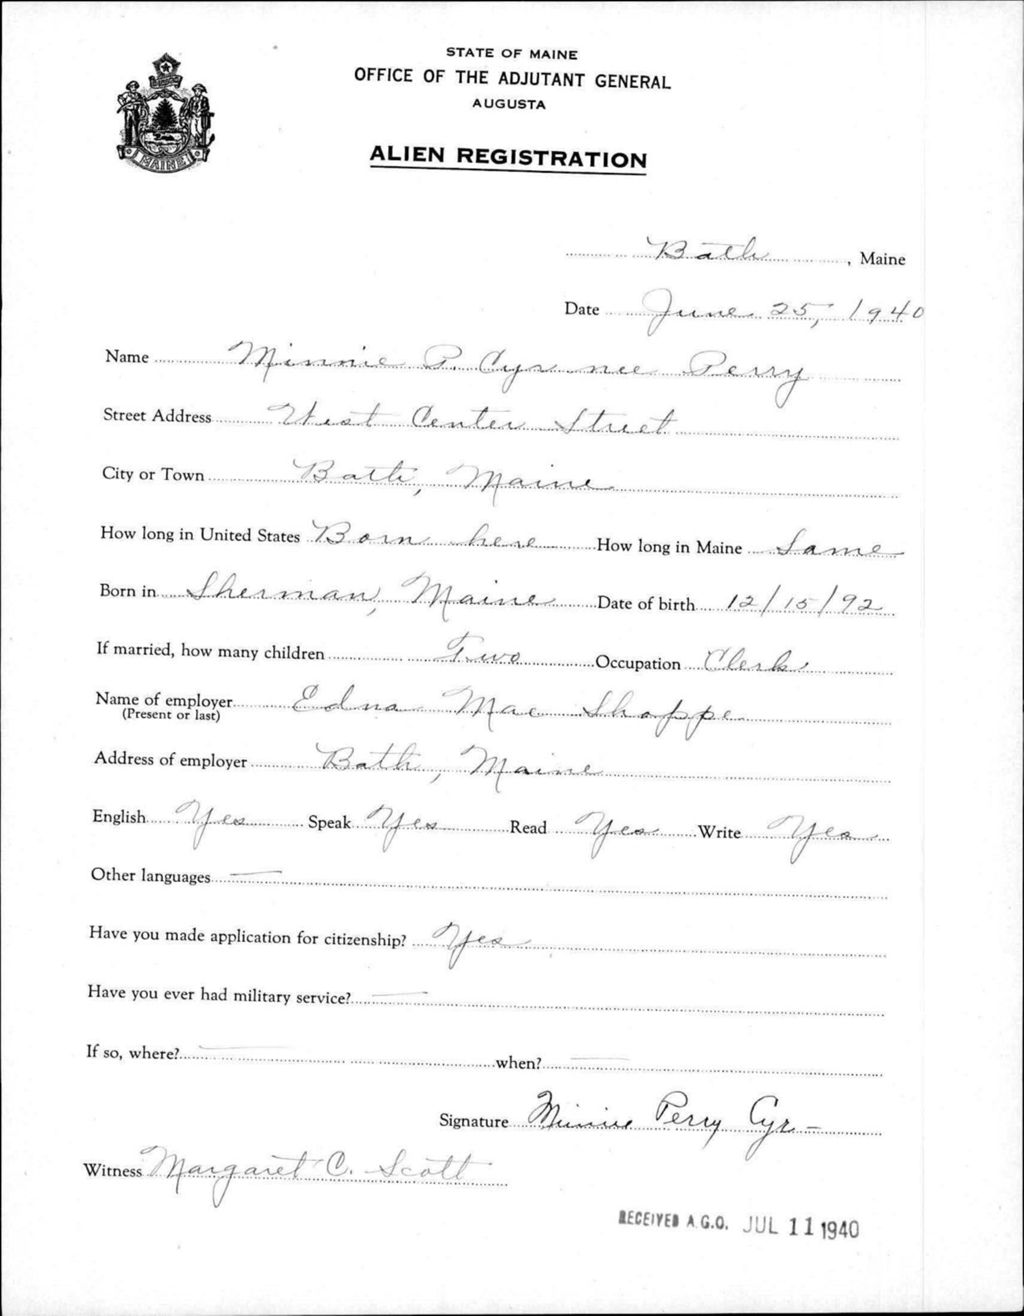 STATE OF MAINE
OFFICE OF THE ADJUTANT GENERAL
AUGUSTA
ALIEN REGISTRATION
MAINE
Bath, Maine
Date June 25, 1940
Name Minnie P. Cyr nee Perry
Street Address West Center Street
City or Town Bath, Maine
How long in United States Born here How long in Maine Same
Born in Sherman, Maine Date of birth 12/15/92
If married, how many children Two Occupation Clerk
Name of employer Edna Mae Shoppe
(Present or last)
Address of employer Bath, Maine
English Yes Speak Yes Read Yes Write Yes
Other languages —
Have you made application for citizenship? Yes
Have you ever had military service? —
If so, where? — when? —
Signature Minnie Perry Cyr –
Witness Margaret C. Scott
RECEIVED A.G.O. JUL 11 1940